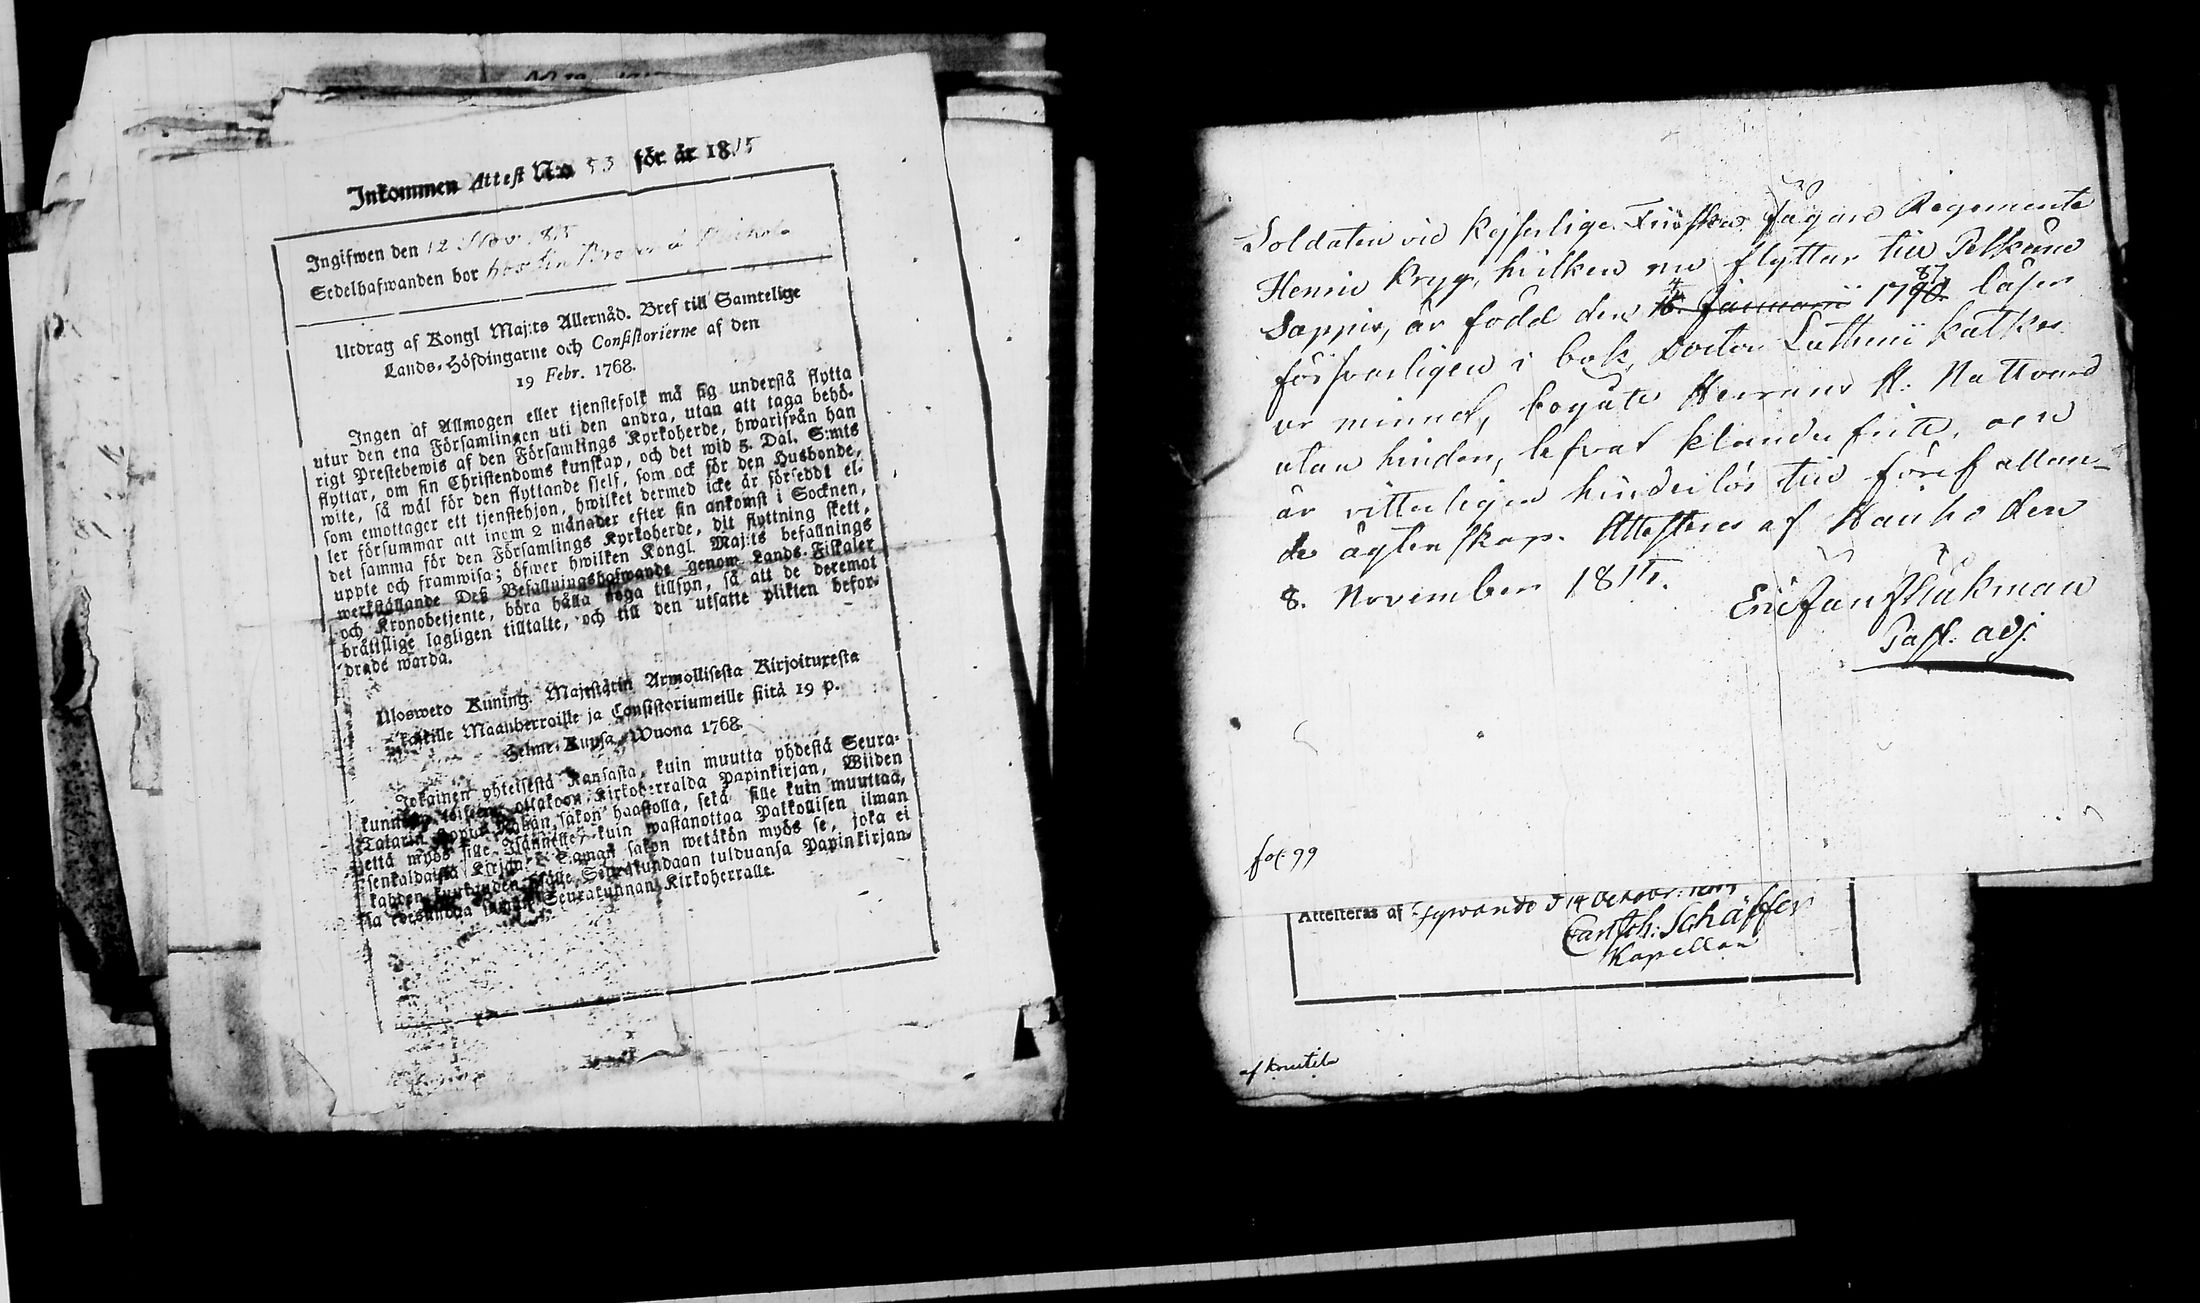 Inkommen Attest N:o 53 för år 1815
Ingifwen den 12 Nov. 1815
Sedelhafwanden bor hos sin
Utdrag af Kongl Maj:ts Allernåd. Bref till Samtelige
Lands-Höfdingarne och Consistorierne af den
19 Febr. 1768.
Ingen af Allmogen eller tjenstefolk må sig understå flytta
utur den ena Församlingen uti den andra, utan att taga behö-
rigt Prestebewis af den Församlings Kyrkoherde, hwarifrån han
flyttar, om sin Christendoms kunskap, och det wid 5. Dal. S:mts
wite, så wäl för den flyttande sielf, som ock för den Husbonde,
som emottager ett tjenstehjon, hwilket dermed icke är försedt el-
ler försummar att inom 2 månader efter sin ankomst i Socknen,
det samma för den Församlings Kyrkoherde, dit flyttning skett,
uppte och framwisa; öfwer hwilken Kongl Maj:ts befallnings
werkställande Deß Befallningshafwande genom Lands-Fiskaler
och Kronobetjente, böra hålla noga tillsyn, så att de deremot
bråttslige lagligen tilltalte, och till den utsatte plikten befor-
drade warda.
Ulosweto Kuning. Majestätin Armollisesta Kirjoituxesta
kaikille Maanherroille ja Consistoriumeille siitä 19 p.
Helme-Kuusa Wuona 1768.
Jokainen yhteisestä Kansasta, kuin muutta yhdestä Seura-
kunnasta toiseen, ottakoon Kirkoherralda Papinkirjan, Wiiden
Talarin sakon haastolla, sekä sille kuin muuttaa,
että myös sille Isännälle, kuin wastanottaa Palkollisen ilman
senkaldaista Kirjaa. Saman sakon wetäkön myös se, joka ei
kahden kuukauden Seurakundaan tulduansa Papinkirjan-
sa Seurakunnan Kirkoherralle.
Soldaten vid Kejserliga Finska Jägare Regemente
Henric Kryg, hvilken nu flyttar till Pelkäne
Sappis, är född den 1787 läser
försvarligen i bok, Doctor Lutherii Katkes
ur minnet, begått Herrans H: Nattvard
utan hinder, lefvat klanderfritt, och
är vitterligen hinderlös till förefallan-
de ägtenskap. Attesteras af Hauho den
8. November 1815.
Eric Joh
Past. adj.
fol 99
Attesteras af Tyrvändö d 14 October
Carl Joh: Schäffer
Kapellan
af